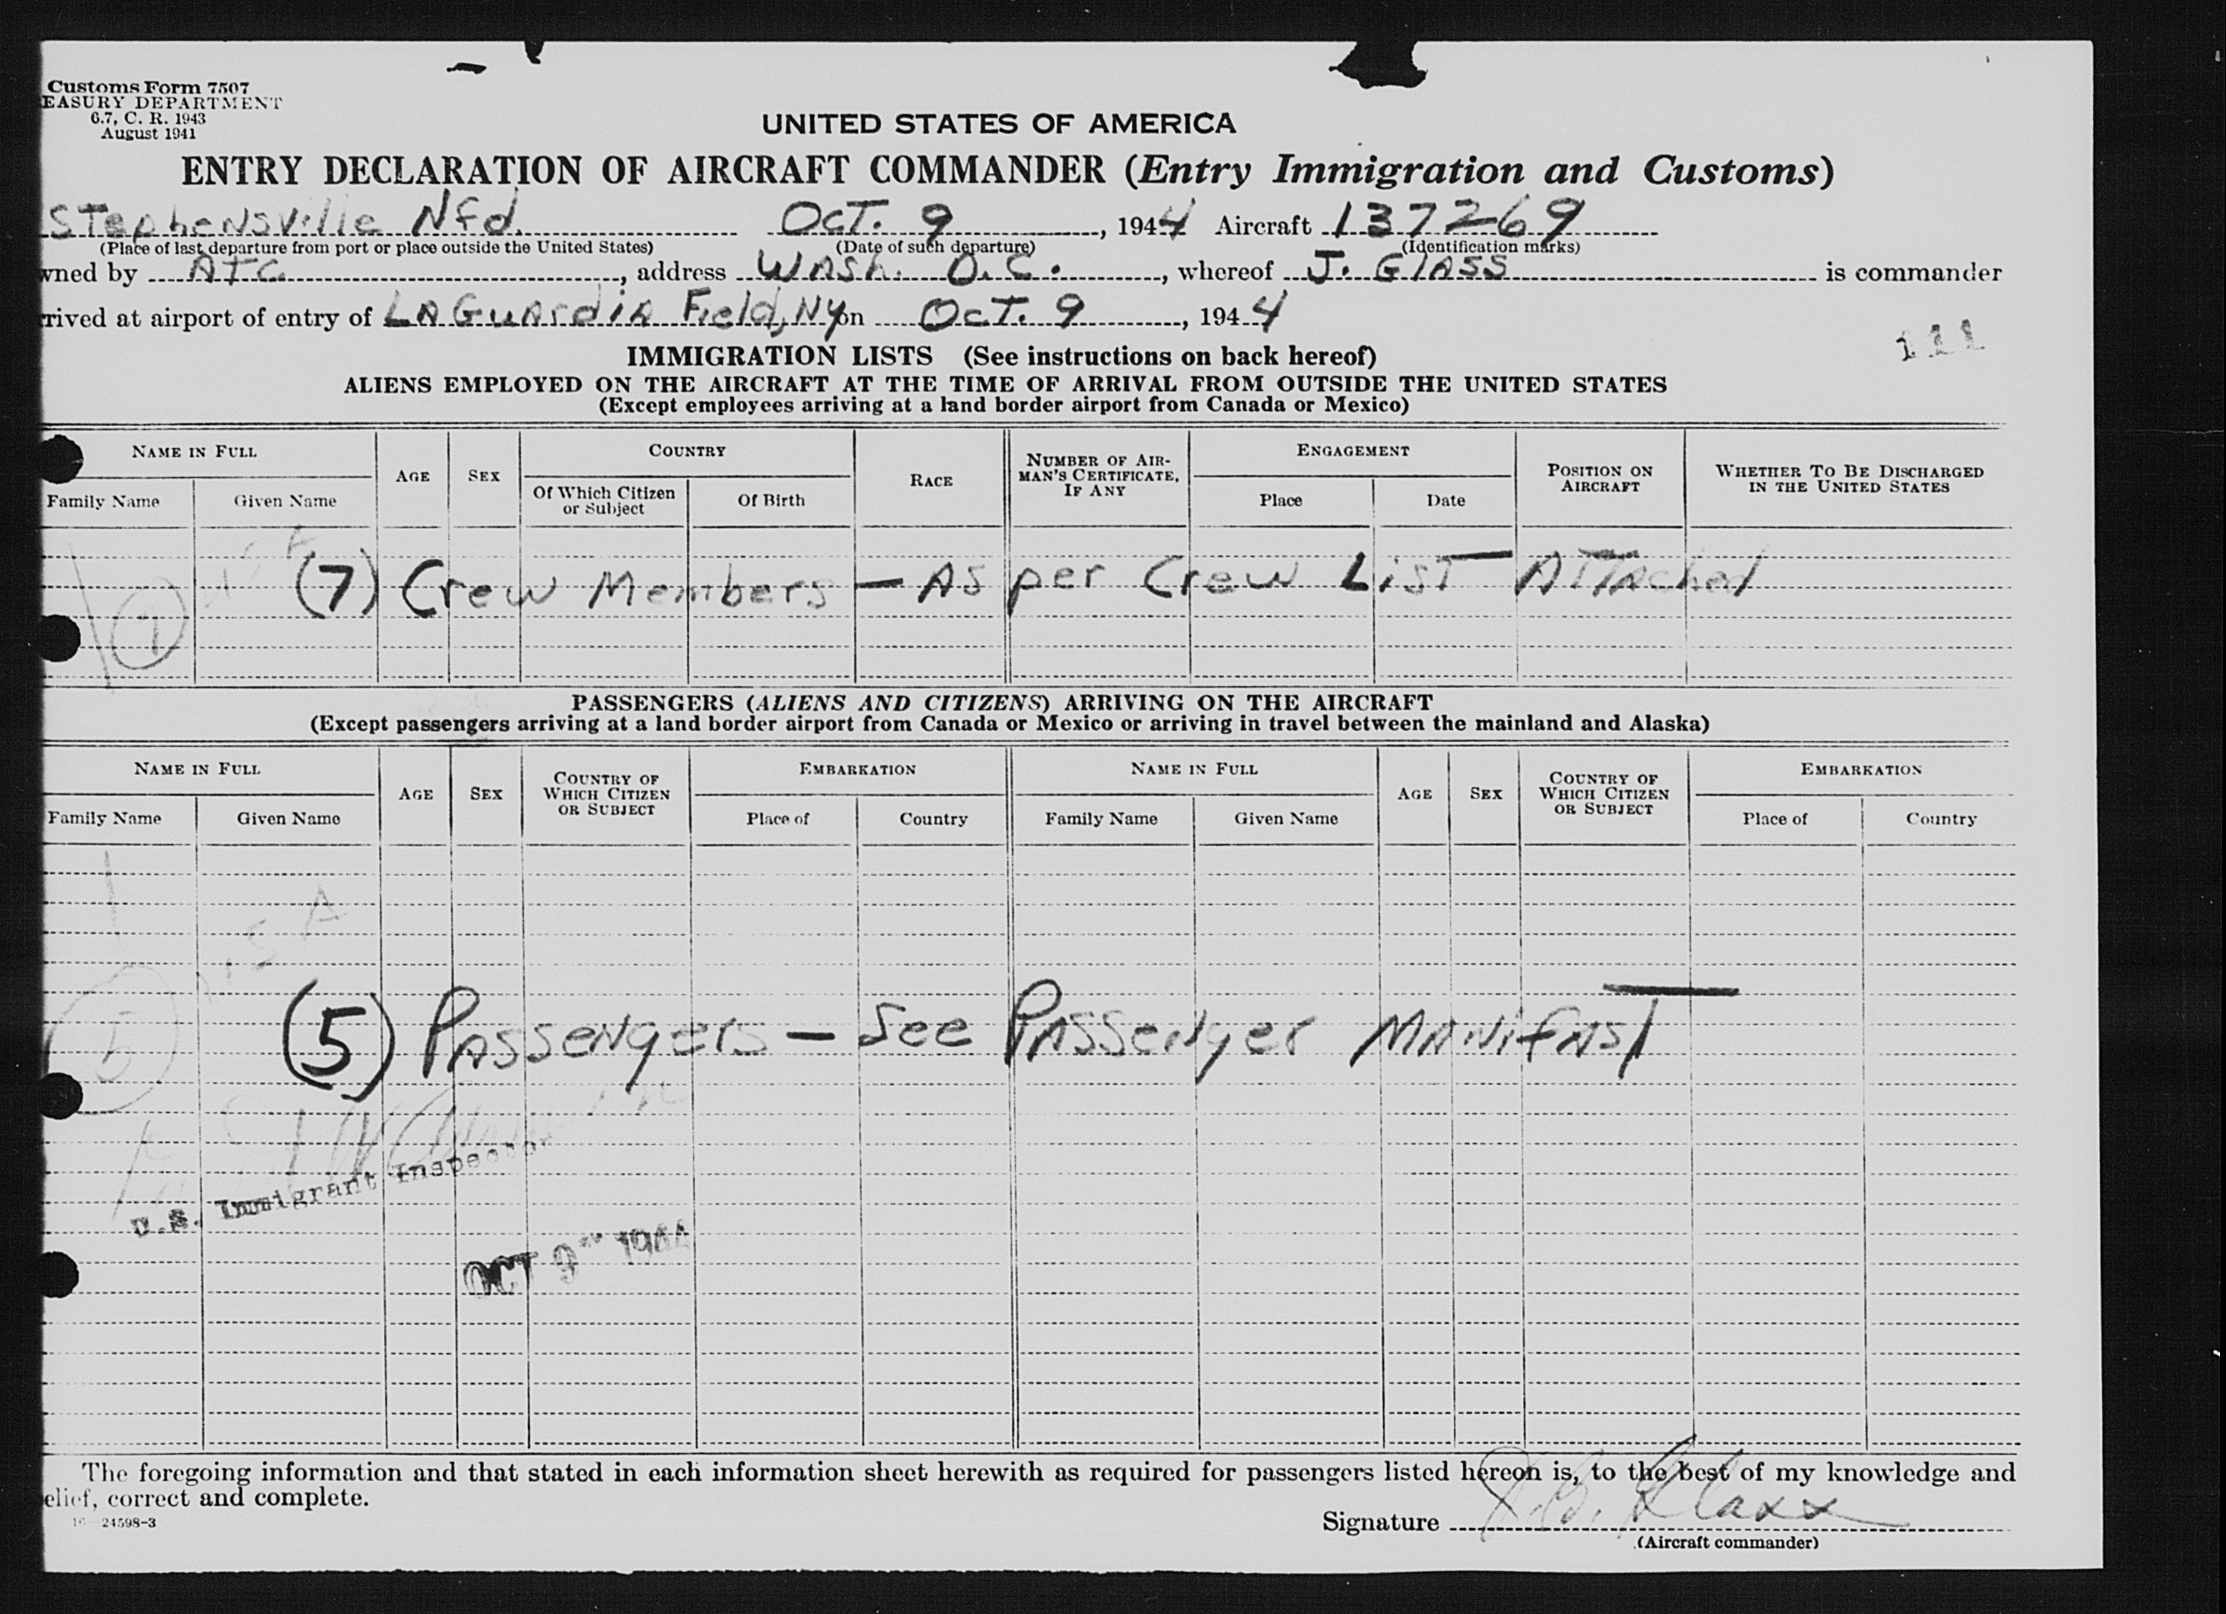 Customs Form 7507
EASURY DEPARTMENT
6.7, C. R. 1943
August 1941
UNITED STATES OF AMERICA
ENTRY DECLARATION OF AIRCRAFT COMMANDER (Entry Immigration and Customs)
Stephensville Nfd. Oct. 9, 1944 Aircraft 137269
(Place of last departure from port or place outside the United States) (Date of such departure) (Identification marks)
wned by ATC, address Wash. D.C., whereof J. Glass is commander
rived at airport of entry of LaGuardia Field, Ny on Oct. 9, 1944
111
IMMIGRATION LISTS (See instructions on back hereof)
ALIENS EMPLOYED ON THE AIRCRAFT AT THE TIME OF ARRIVAL FROM OUTSIDE THE UNITED STATES
(Except employees arriving at a land border airport from Canada or Mexico)
NAME IN FULL AGE SEX COUNTRY RACE NUMBER OF AIRMAN'S CERTIFICATE, IF ANY ENGAGEMENT POSITION ON AIRCRAFT WHETHER TO BE DISCHARGED IN THE UNITED STATES
Family Name Given Name Of Which Citizen or Subject Of Birth Place Date
(7) Crew Members - As per Crew List Attached
7
PASSENGERS (ALIENS AND CITIZENS) ARRIVING ON THE AIRCRAFT
(Except passengers arriving at a land border airport from Canada or Mexico or arriving in travel between the mainland and Alaska)
NAME IN FULL AGE SEX COUNTRY OF WHICH CITIZEN OR SUBJECT EMBARKATION NAME IN FULL AGE SEX COUNTRY OF WHICH CITIZEN OR SUBJECT EMBARKATION
Family Name Given Name Place of Country Family Name Given Name Place of Country
USA
5
(5) Passengers - See Passenger Manifast
U.S. Immigrant Inspector
OCT 9 1944
The foregoing information and that stated in each information sheet herewith as required for passengers listed hereon is, to the best of my knowledge and
elief, correct and complete.
16-24598-3
Signature J. G. Glass
(Aircraft commander)